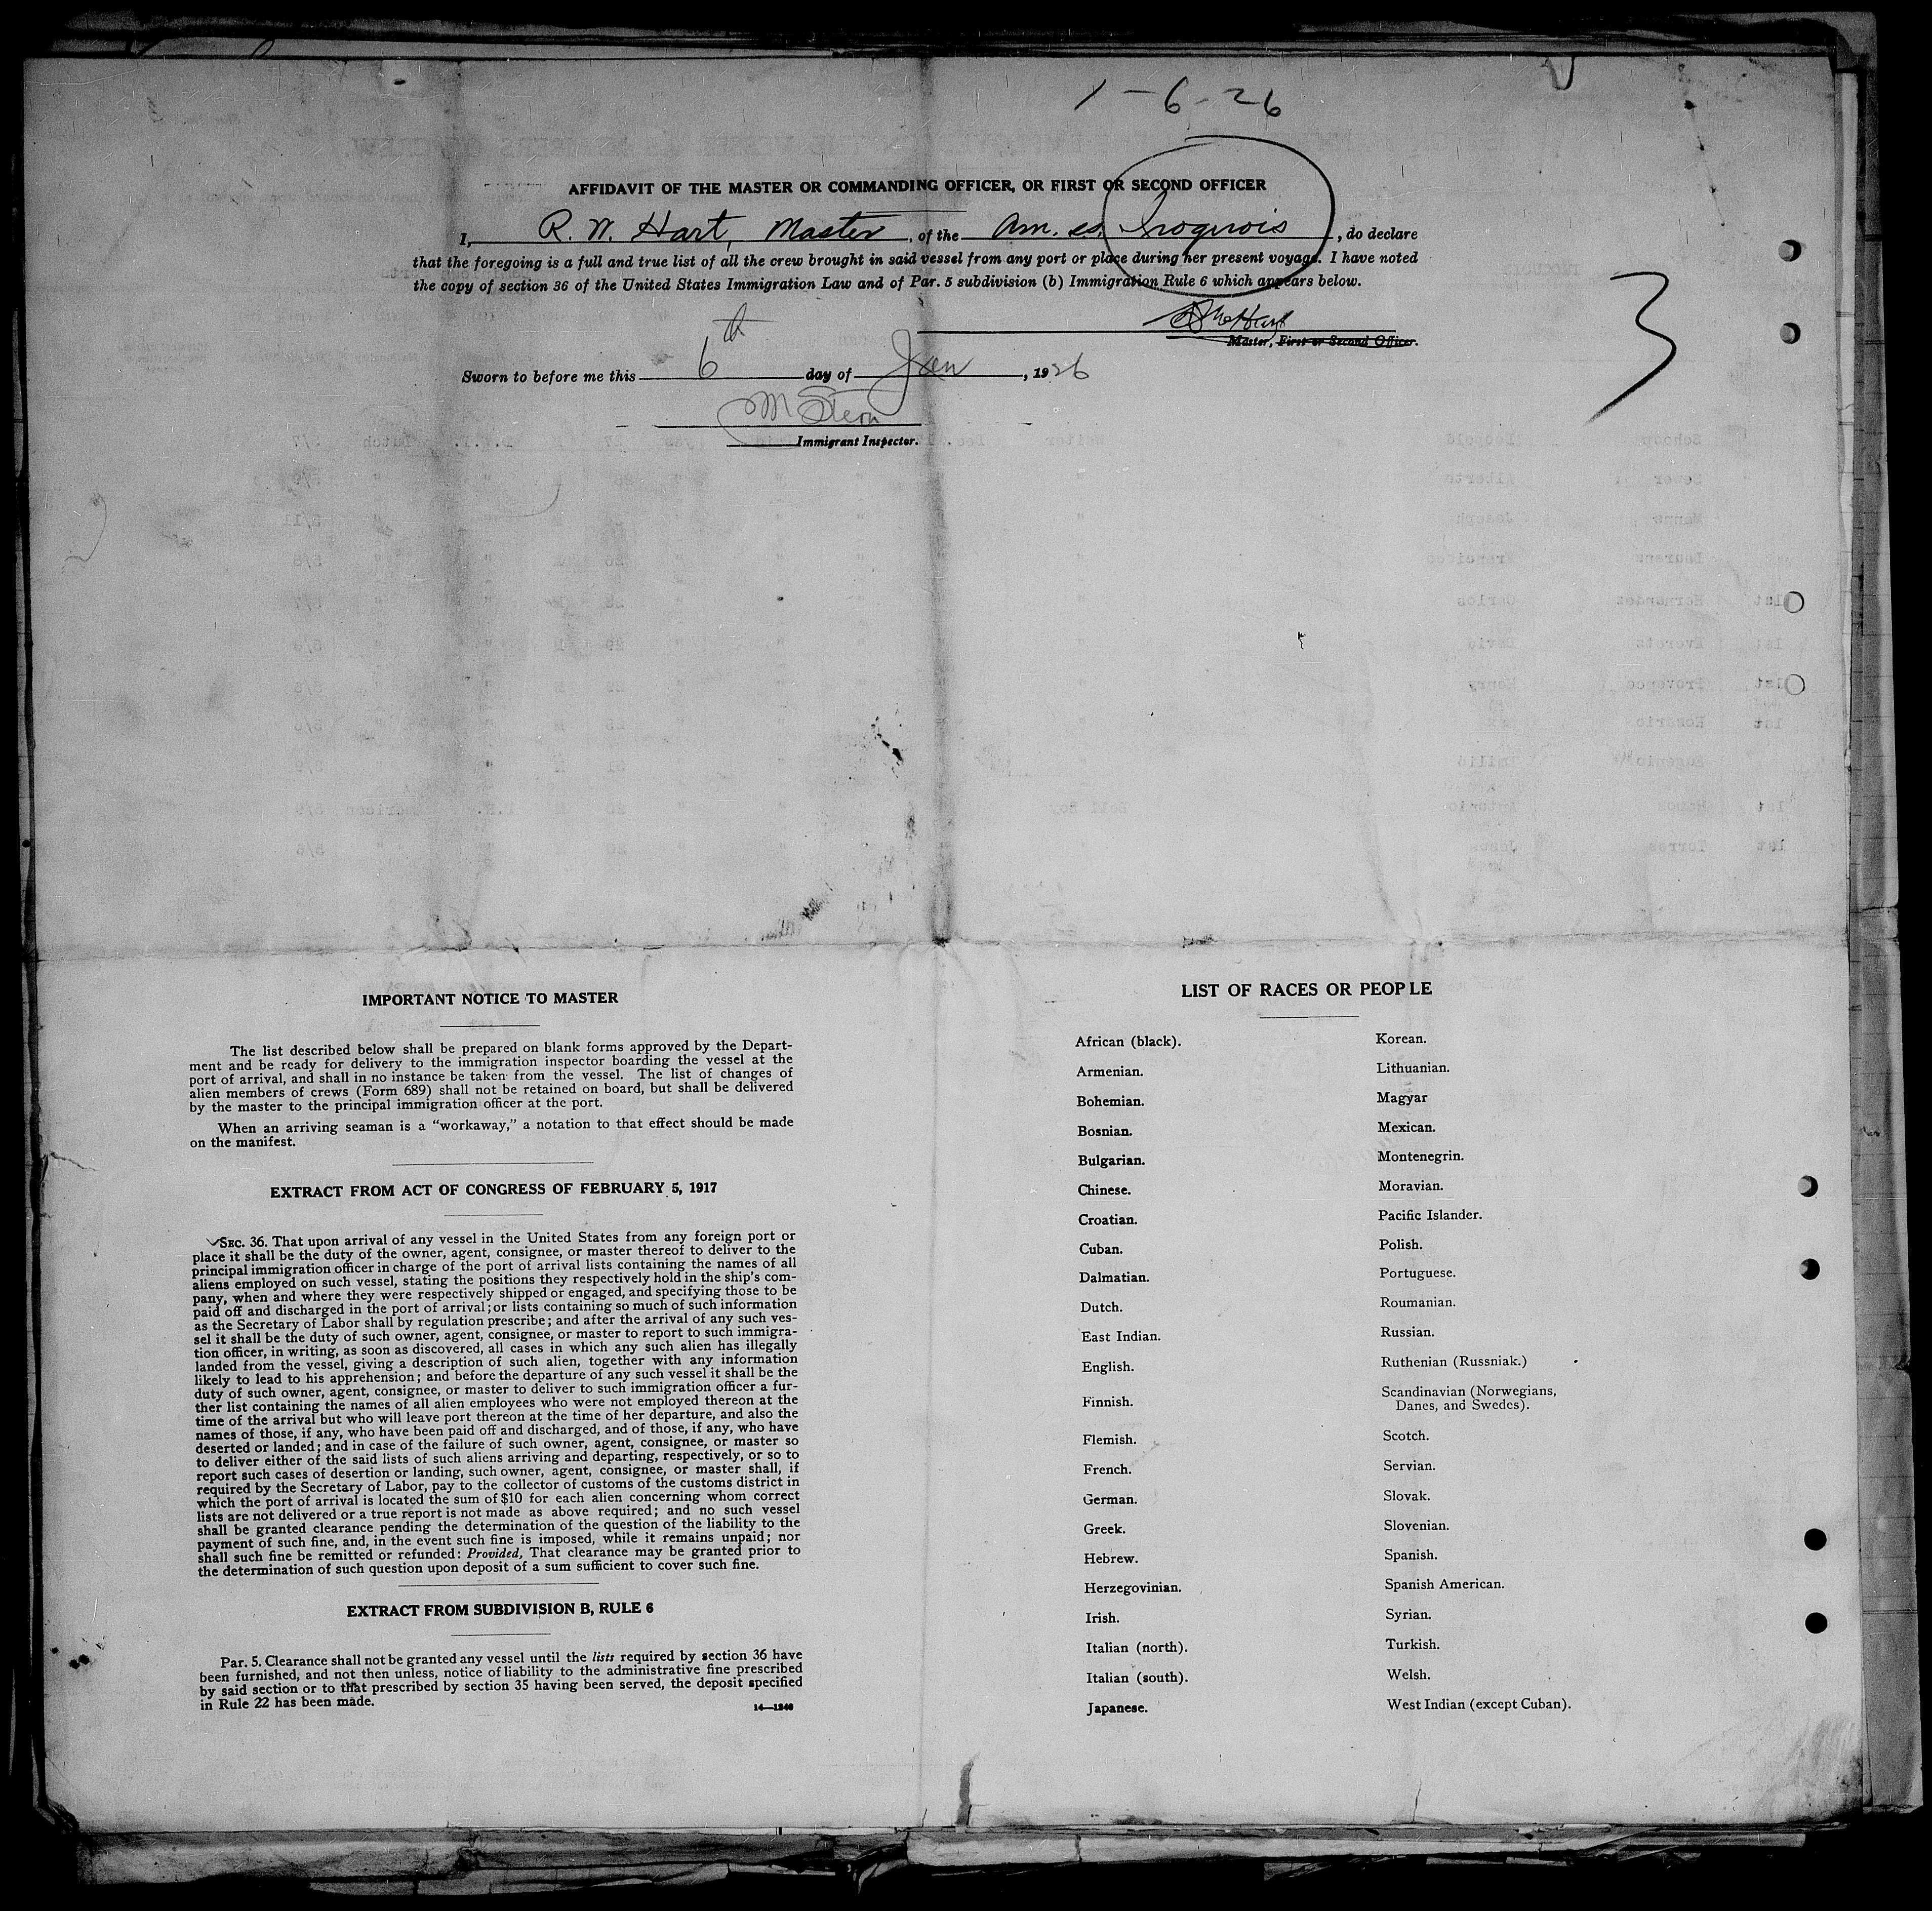 1-6-26
AFFIDAVIT OF THE MASTER OR COMMANDING OFFICER, OR FIRST OR SECOND OFFICER
I, R. W. Hart, Master, of the Am. ss. Iroquois, do declare
that the foregoing is a full and true list of all the crew brought in said vessel from any port or place during her present voyage. I have noted
the copy of section 36 of the United States Immigration Law and of Par. 5 subdivision (b) Immigration Rule 6 which appears below.
3
Master, First or Second Officer.
Sworn to before me this 6th day of Jan, 1926
M Stern
Immigrant Inspector.
IMPORTANT NOTICE TO MASTER
The list described below shall be prepared on blank forms approved by the Depart-
ment and be ready for delivery to the immigration inspector boarding the vessel at the
port of arrival, and shall in no instance be taken from the vessel. The list of changes of
alien members of crews (Form 689) shall not be retained on board, but shall be delivered
by the master to the principal immigration officer at the port.
When an arriving seaman is a "workaway," a notation to that effect should be made
on the manifest.
EXTRACT FROM ACT OF CONGRESS OF FEBRUARY 5, 1917
SEC. 36. That upon arrival of any vessel in the United States from any foreign port or
place it shall be the duty of the owner, agent, consignee, or master thereof to deliver to the
principal immigration officer in charge of the port of arrival lists containing the names of all
aliens employed on such vessel, stating the positions they respectively hold in the ship's com-
pany, when and where they were respectively shipped or engaged, and specifying those to be
paid off and discharged in the port of arrival; or lists containing so much of such information
as the Secretary of Labor shall by regulation prescribe; and after the arrival of any such ves-
sel it shall be the duty of such owner, agent, consignee, or master to report to such immigra-
tion officer, in writing, as soon as discovered, all cases in which any such alien has illegally
landed from the vessel, giving a description of such alien, together with any information
likely to lead to his apprehension; and before the departure of any such vessel it shall be the
duty of such owner, agent, consignee, or master to deliver to such immigration officer a fur-
ther list containing the names of all alien employees who were not employed thereon at the
time of the arrival but who will leave port thereon at the time of her departure, and also the
names of those, if any, who have been paid off and discharged, and of those, if any, who have
deserted or landed; and in case of the failure of such owner, agent, consignee, or master so
to deliver either of the said lists of such aliens arriving and departing, respectively, or so to
report such cases of desertion or landing, such owner, agent, consignee, or master shall, if
required by the Secretary of Labor, pay to the collector of customs of the customs district in
which the port of arrival is located the sum of $10 for each alien concerning whom correct
lists are not delivered or a true report is not made as above required; and no such vessel
shall be granted clearance pending the determination of the question of the liability to the
payment of such fine, and, in the event such fine is imposed, while it remains unpaid; nor
shall such fine be remitted or refunded: Provided, That clearance may be granted prior to
the determination of such question upon deposit of a sum sufficient to cover such fine.
EXTRACT FROM SUBDIVISION B, RULE 6
Par. 5. Clearance shall not be granted any vessel until the lists required by section 36 have
been furnished, and not then unless, notice of liability to the administrative fine prescribed
by said section or to that prescribed by section 35 having been served, the deposit specified
in Rule 22 has been made.
14—1240
LIST OF RACES OR PEOPLE
African (black).
Armenian.
Bohemian.
Bosnian.
Bulgarian.
Chinese.
Croatian.
Cuban.
Dalmatian.
Dutch.
East Indian.
English.
Finnish.
Flemish.
French.
German.
Greek.
Hebrew.
Herzegovinian.
Irish.
Italian (north).
Italian (south).
Japanese.
Korean.
Lithuanian.
Magyar
Mexican.
Montenegrin.
Moravian.
Pacific Islander.
Polish.
Portuguese.
Roumanian.
Russian.
Ruthenian (Russniak.)
Scandinavian (Norwegians,
Danes, and Swedes).
Scotch.
Servian.
Slovak.
Slovenian.
Spanish.
Spanish American.
Syrian.
Turkish.
Welsh.
West Indian (except Cuban).